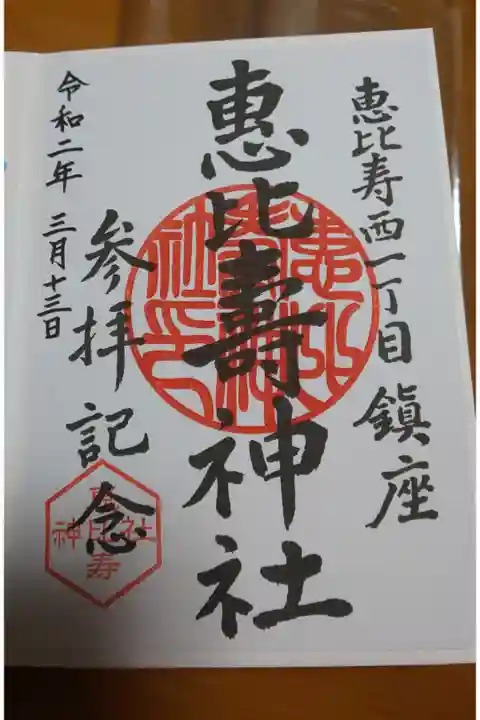 恵比寿西一丁目 鎮座
惠比壽神社
参拝記念
令和二年 三月十三日
恵比寿
神社